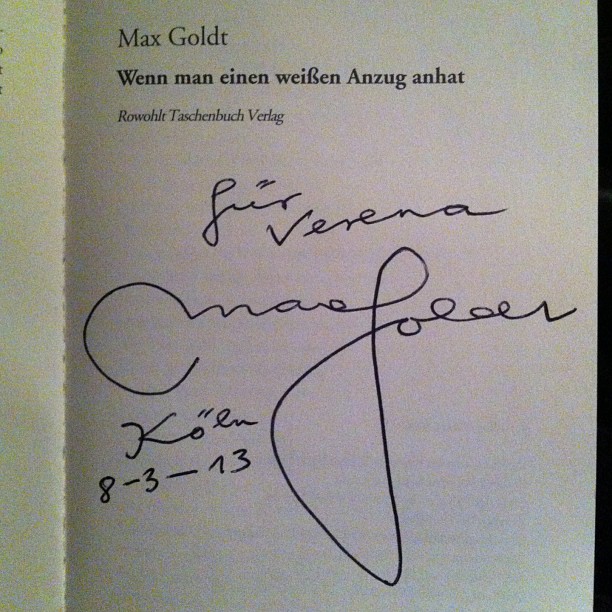 Max Goldt
Wenn man einen weißen Anzug anhat
Rowohlt Taschenbuch Verlag
für
Verena
Max Goldt
Köln
8-3-13